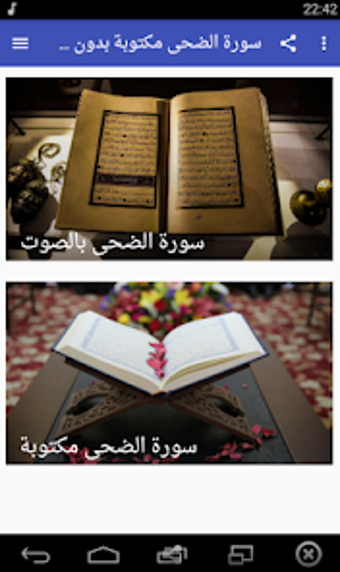 22:42
سورة الضحى مكتوبة بدون ...
سورة الضحى بالصوت
سورة الضحى مكتوبة